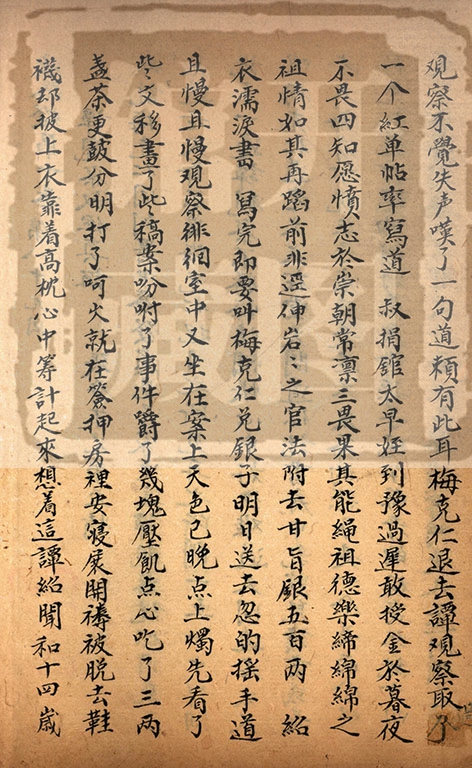 観察不覺失声嘆了一句道頼有此耳梅克仁退去譚観察取了
一个紅單帖率寫道 叔捐舘太早姪到豫過遲敢授金於暮夜
不畏四知愿憤志於崇朝常凛三畏果其能繩祖德樂締綿綿之
祖情如其再蹈前非逕伸岩〻之官法附去甘旨銀五百兩 紹
衣濡淚書 寫完即要叫梅克仁兑銀子明日送去忽的摇手道
且慢且慢観察徘徊室中又坐在案上天色已晚点上燭先看了
些文移畫了些稿案吩咐了事件爵了幾塊壓飢点心吃了三两
盏茶更鼓分明打了呵欠就在簽押房裡安寢展開褥被脱去鞋
襪却披上衣靠着高枕心中筹計起來想着這譚紹聞和十四歲